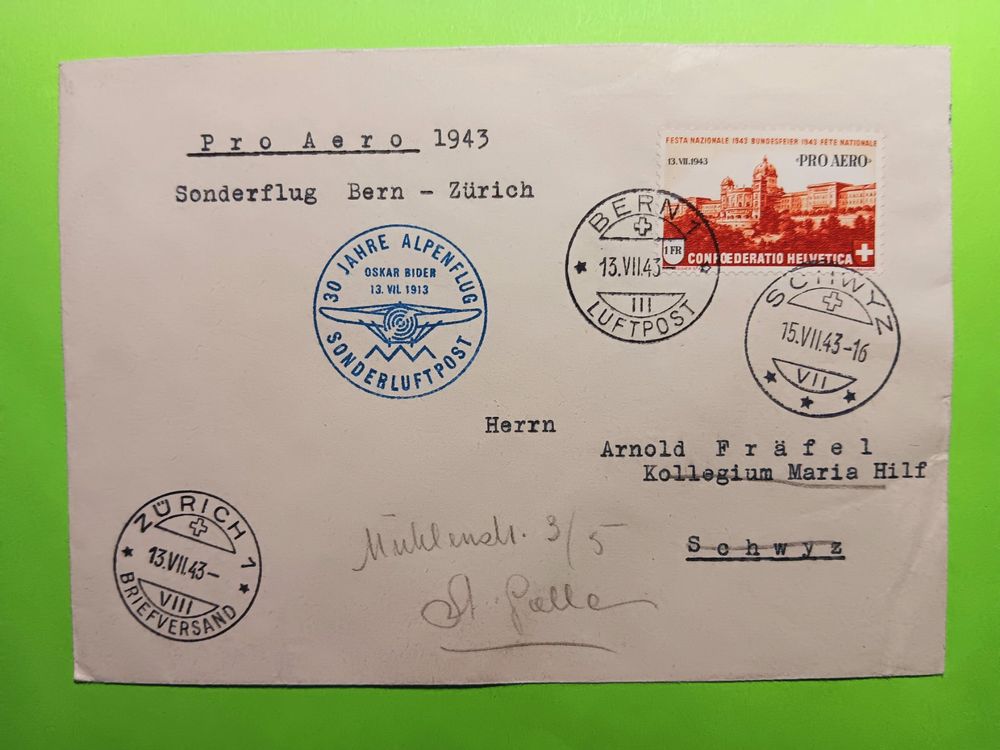 Pro Aero 1943
Sonderflug Bern - Zürich
FESTA NAZIONALE 1943 BUNDESFEIER 1943 FÊTE NATIONALE
13.VII.1943 «PRO AERO»
1 FR
CONFŒDERATIO HELVETICA
BERN 1
13.VII.43–
III
LUFTPOST
30 JAHRE ALPENFLUG
OSKAR BIDER
13. VII. 1913
SONDERLUFTPOST
SCHWYZ
15.VII.43–16
VII
Herrn
Arnold Fräfel
Kollegium Maria Hilf
Schwyz
Mühlenstr. 3/5
St. Gallen
ZÜRICH 1
13.VII.43–
VIII
BRIEFVERSAND